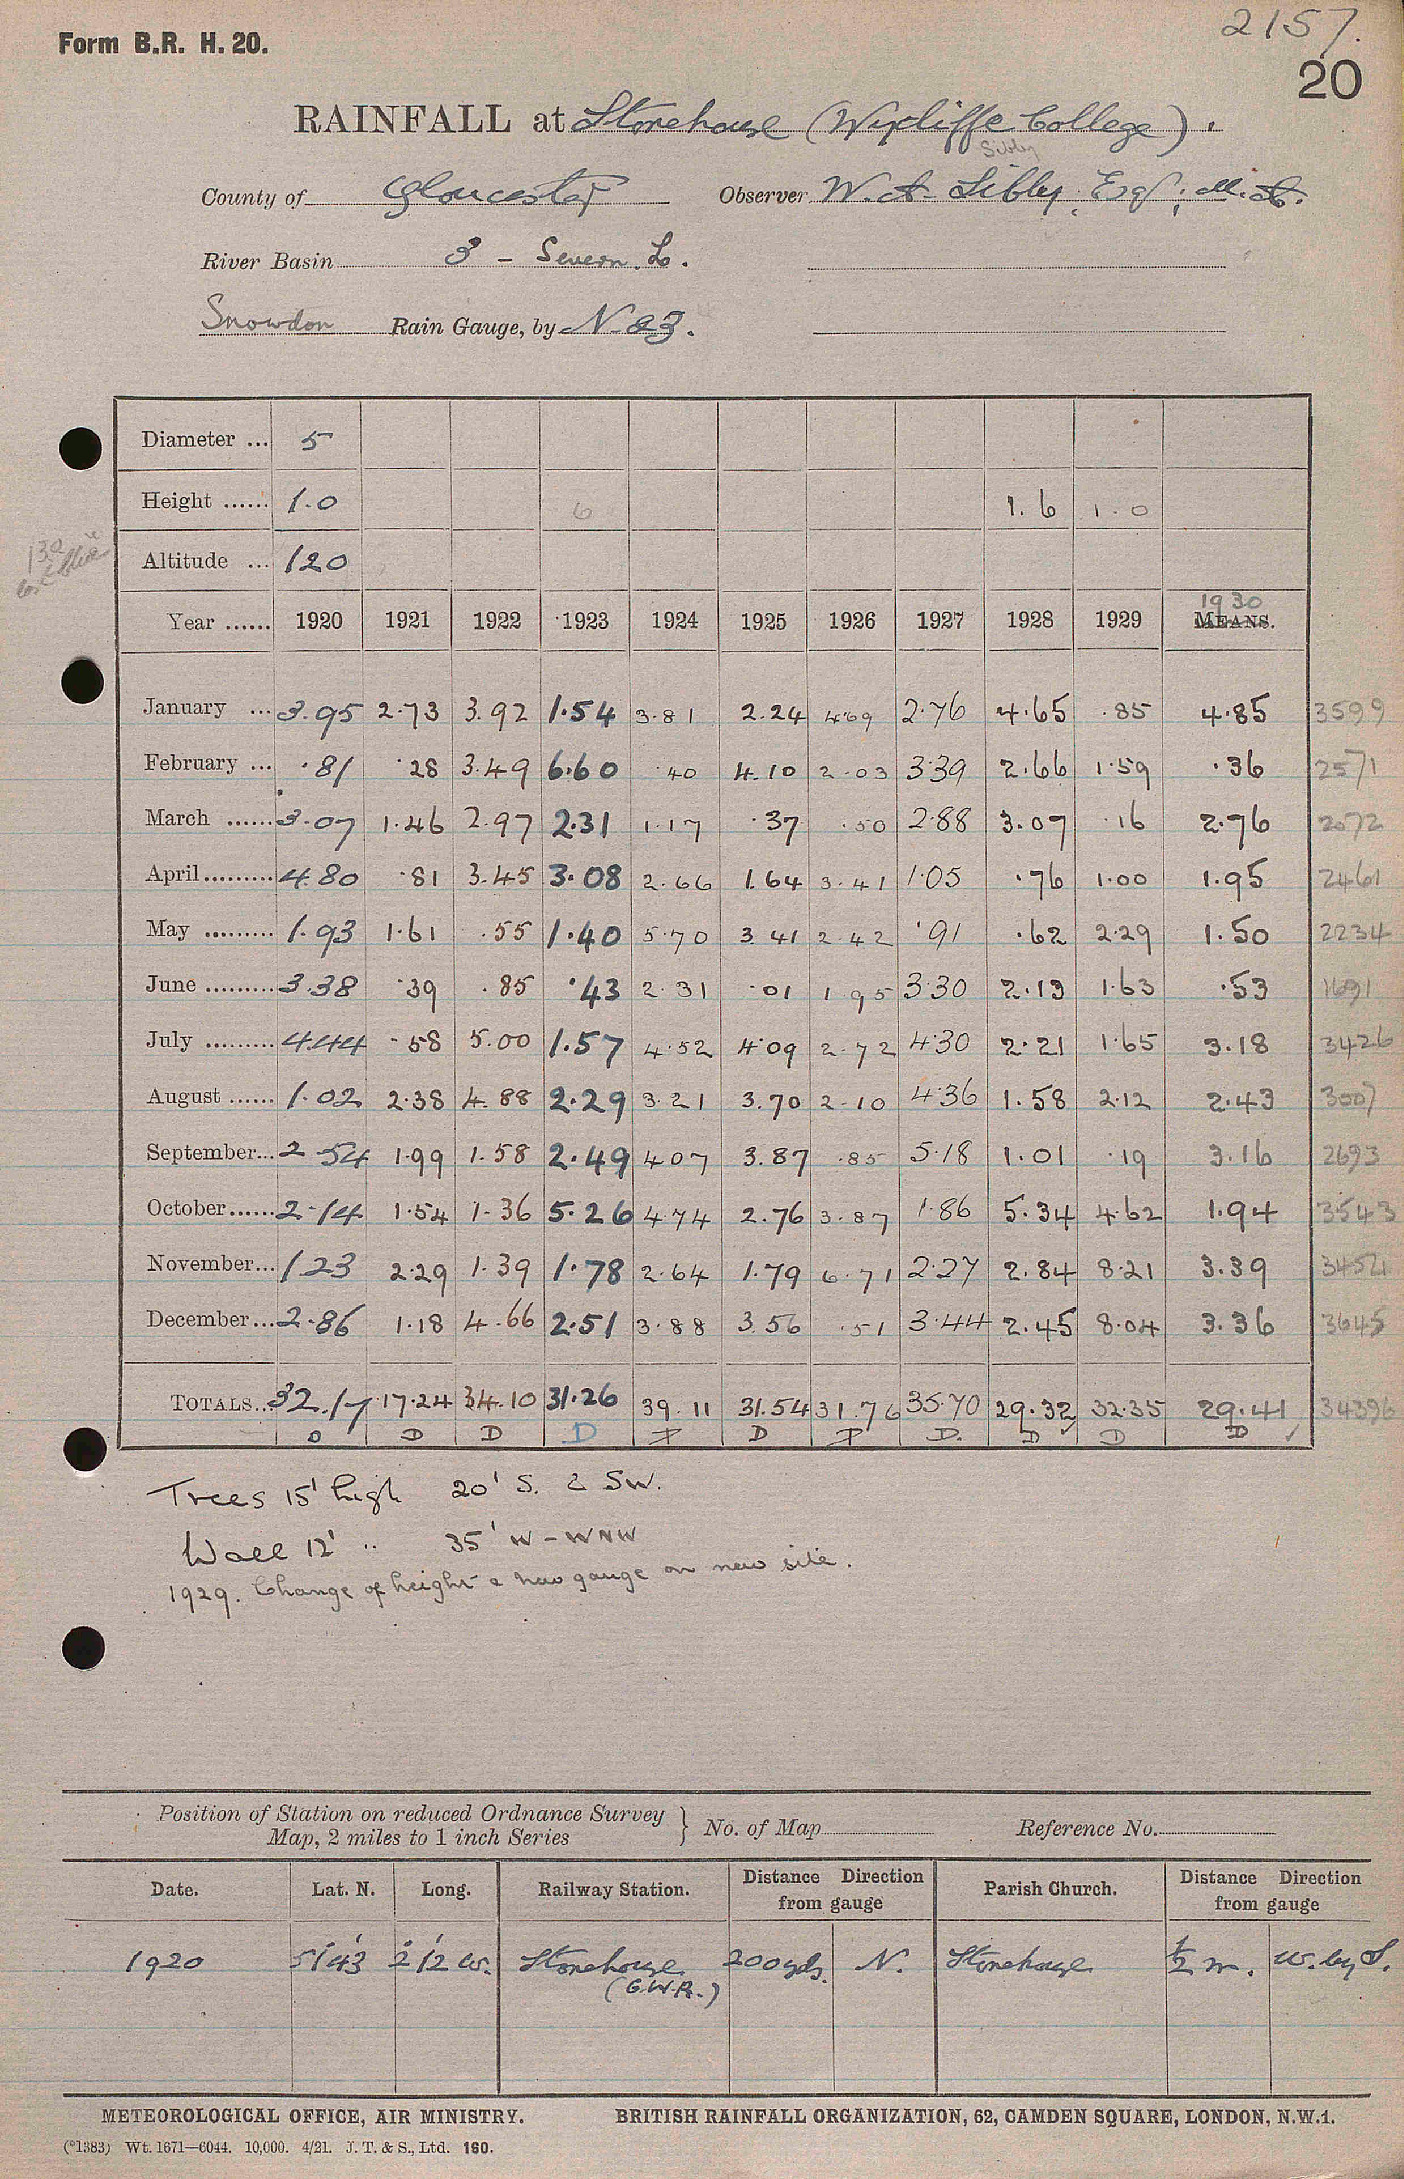 2157.
Form B.R. H. 20.
20
RAINFALL at Stonehouse (Wycliffe College).
Sibly
County of Gloucester Observer W. A. Sibly, Esq; M.A.
River Basin 3 - Severn. L.
Snowdon Rain Gauge, by N & Z.
Diameter ... 5
Height ...... 1.0 6 1.6 1.0
Altitude ... 120
130
1930
Year ...... 1920 1921 1922 1923 1924 1925 1926 1927 1928 1929 MEANS.
January ... 3.95 2.73 3.92 1.54 3.81 2.24 4.69 2.76 4.65 .85 4.85 3599
February ... .81 .28 3.49 6.60 .40 4.10 2.03 3.39 2.66 1.59 .36 2571
March ...... 3.07 1.46 2.97 2.31 1.17 .37 .50 2.88 3.07 .16 2.76 2072
April ......... 4.80 .81 3.45 3.08 2.66 1.64 3.41 1.05 .76 1.00 1.95 2461
May ......... 1.93 1.61 .55 1.40 5.70 3.41 2.42 .91 .62 2.29 1.50 2234
June ......... 3.38 .39 .85 .43 2.31 .01 1.95 3.30 2.13 1.63 .53 1691
July ......... 4.44 .58 5.00 1.57 4.52 4.09 2.72 4.30 2.21 1.65 3.18 3426
August ...... 1.02 2.38 4.88 2.29 3.21 3.70 2.10 4.36 1.58 2.12 2.43 3007
September... 2.54 1.99 1.58 2.49 4.07 3.87 .85 5.18 1.01 .19 3.16 2693
October...... 2.14 1.54 1.36 5.26 4.74 2.76 3.87 1.86 5.34 4.62 1.94 3543
November... 1.23 2.29 1.39 1.78 2.64 1.79 6.71 2.27 2.84 8.21 3.39 3454
December... 2.86 1.18 4.66 2.51 3.88 3.56 .51 3.44 2.45 8.04 3.36 3645
TOTALS... 32.17 17.24 34.10 31.26 39.11 31.54 31.76 35.70 29.32 32.35 29.41 34396
D D D D P D P D. D D D
Trees 15' high 20' S. & SW.
Wall 12' " 35' W-WNW
1929. Change of height & new gauge on new site.
Position of Station on reduced Ordnance Survey
Map, 2 miles to 1 inch Series } No. of Map Reference No.
Date. Lat. N. Long. Railway Station. Distance Direction from gauge Parish Church. Distance Direction from gauge
1920 51°43' 2°12 W. Stonehouse (G.W.R.) 200 yds. N. Stonehouse ½ m. W. by S.
METEOROLOGICAL OFFICE, AIR MINISTRY. BRITISH RAINFALL ORGANIZATION, 62, CAMDEN SQUARE, LONDON, N.W.1.
(*1383) Wt. 1671—6044. 10,000. 4/21. J. T. & S., Ltd. 160.